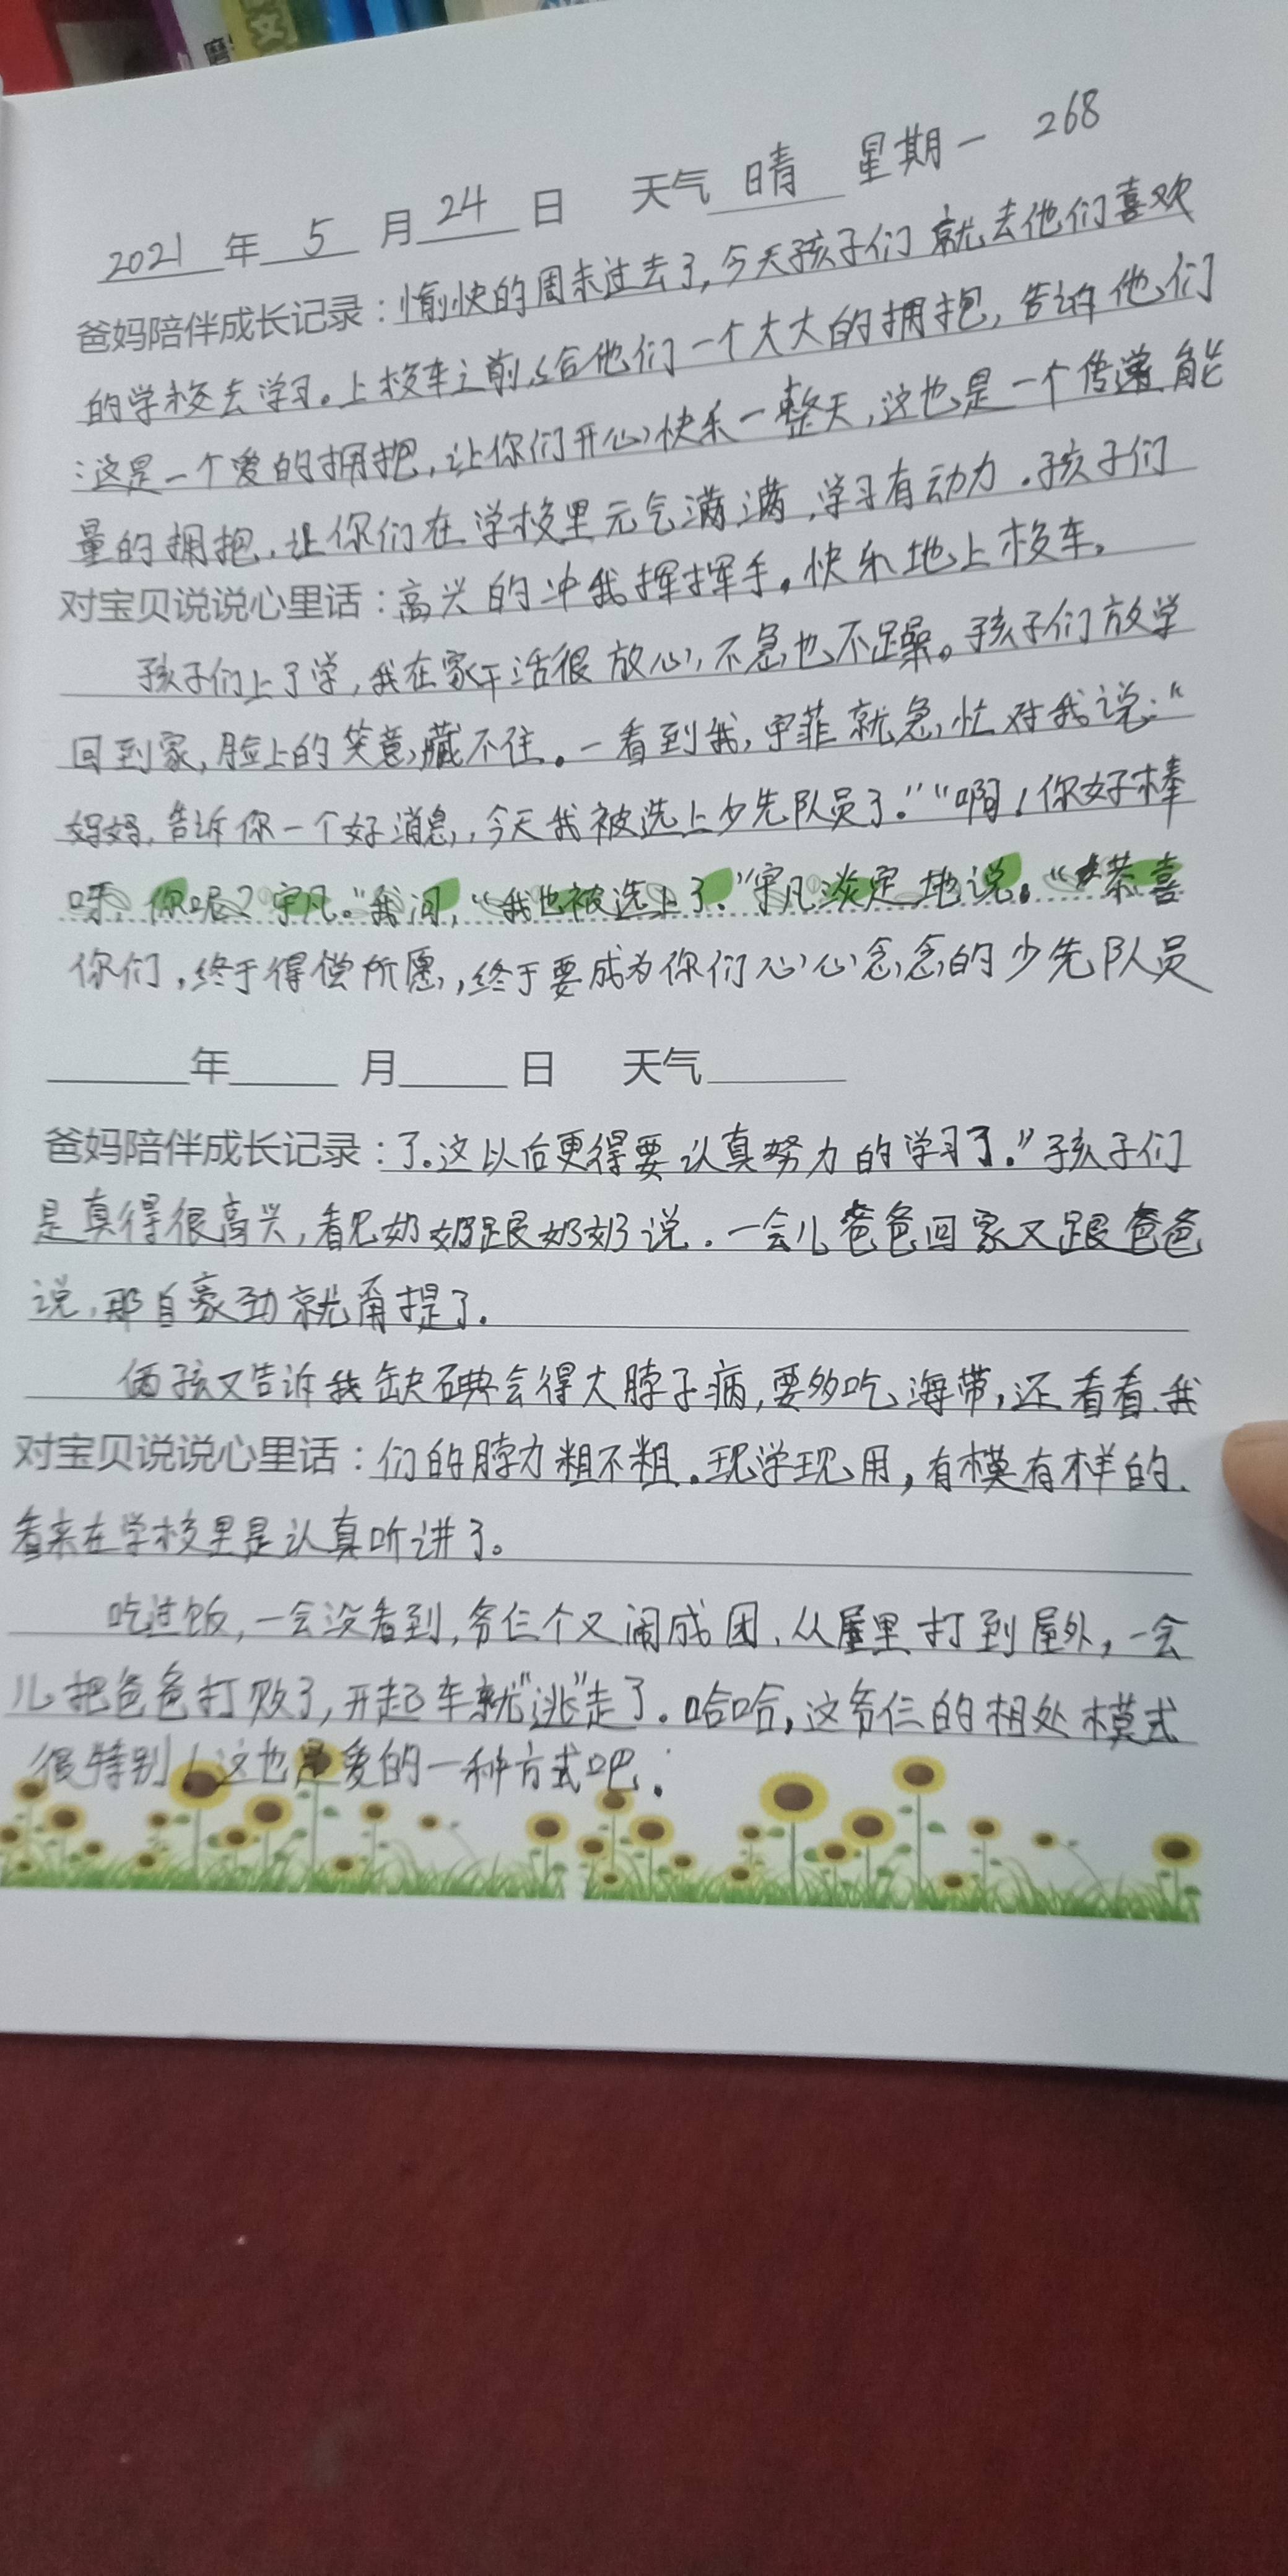 磨
文
2021 年 5 月 24 日 天气 晴 星期一 268
爸妈陪伴成长记录：愉快的周末过去了，今天孩子们就去他们喜欢
的学校去学习。上校车之前，给他们一个大大的拥抱，告诉他们
：这是一个爱的拥抱，让你们开心快乐一整天，这也是一个传递能
量的拥抱，让你们在学校里元气满满，学习有动力。孩子们
对宝贝说说心里话：高兴的冲我挥挥手。快乐地上校车。
孩子们上了学，我在家干活很放心，不急也不躁。孩子们放学
回到家，脸上的笑意藏不住。一看到我，宇菲就急忙对我说：“
妈妈，告诉你一个好消息，今天我被选上少先队员了。”“啊！你好棒
呀，你呢？宇凡。”我问，“我也被选上了。”宇凡淡定地说。“恭喜
你们，终于得偿所愿，终于要成为你们心心念念的少先队员
年 月 日 天气
爸妈陪伴成长记录：了。这以后更得要认真努力的学习了。”孩子们
是真得很高兴，看见奶奶跟奶奶说。一会儿爸爸回家又跟爸爸
说，那自豪劲就甭提了。
俩孩又告诉我缺碘会得大脖子病，要多吃海带，还看看我
对宝贝说说心里话：们的脖力粗不粗。现学现用，有模有样的。
看来在学校里是认真听讲了。
吃过饭，一会没看到，爷仨个又闹成团，从屋里打到屋外，一会
儿把爸爸打败了，开起车就“逃”走了。哈哈，这爷仨的相处模式
很特别！这也是爱的一种方式吧。